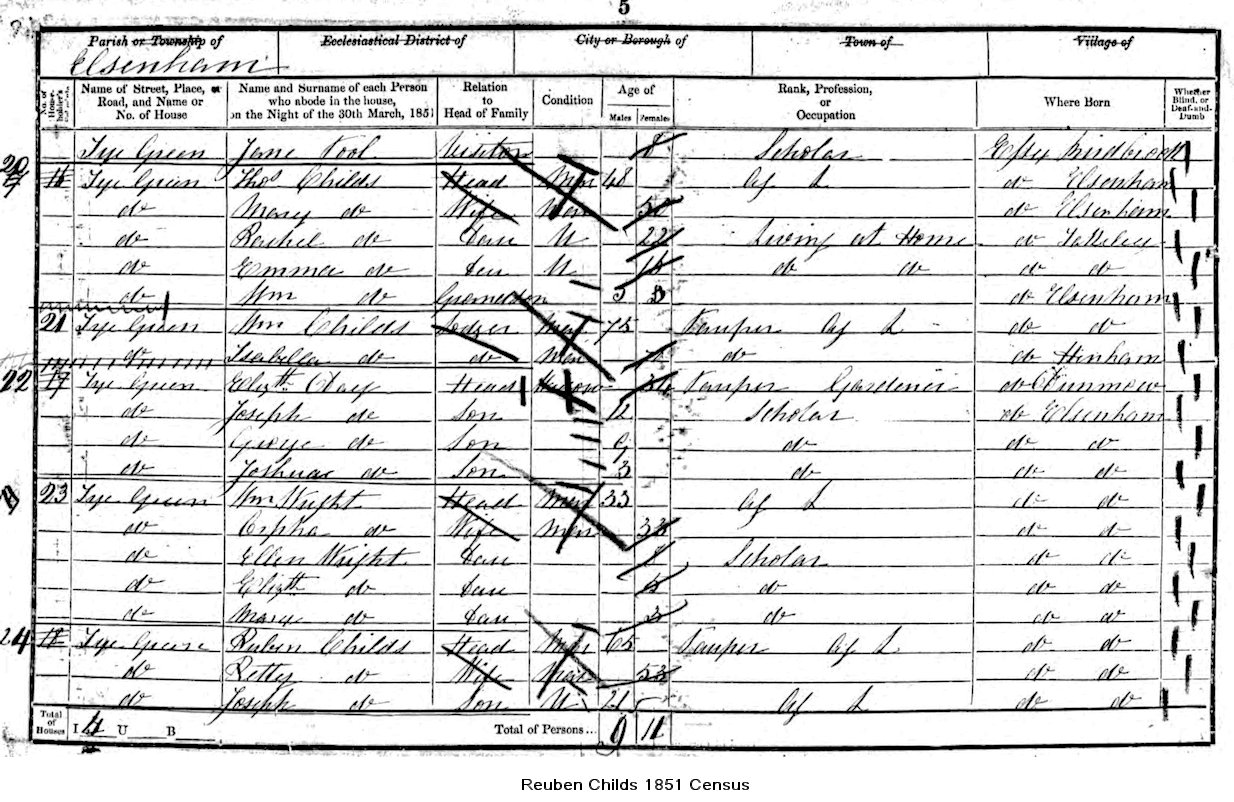 5
Parish or Township of Ecclesiastical District of City or Borough of Town of Village of
Elsenham
No. of House-holder's Name of Street, Place, or Road, and Name or No. of House Name and Surname of each Person who abode in the house, on the Night of the 30th March, 1851 Relation to Head of Family Condition Age of Males Females Rank, Profession, or Occupation Where Born Whether Blind, or Deaf-and-Dumb
Tye Green Jane Pool Visitor 8 Scholar Essex Birdbrook
20 Tye Green Thos Childs Head Mar 48 Ag L do Elsenham
do Mary do Wife Mar do Elsenham
do Rachel do Dau U 22 Living at Home do Takeley
do Emma do Dau U do do do do
do Wm do Grandson 3 do Elsenham
21 Tye Green Wm Childs Lodger Mar 75 Pauper Ag L do do
do Isabella do do Mar do do Henham
22 17 Tye Green Elizth Clay Head Widow Pauper Gardener do Dunmow
do Joseph do Son 12 Scholar do Elsenham
do George do Son 9 do do do
do Joshua do Son 3 do do do
23 Tye Green Wm Wright Head Mar 33 Ag L do do
do Orpha do Wife Mar 33 do do
do Ellen Wright Dau Scholar do do
do Elizth do Dau do do do
do Mary do Dau 3 do do do
24 18 Tye Green Rubin Childs Head Mar 65 Pauper Ag L do do
do Betty do Wife Mar 53 do do
do Joseph do Son U 21 Ag L do do
Total of Houses I 4 U B Total of Persons... 9 11
Reuben Childs 1851 Census